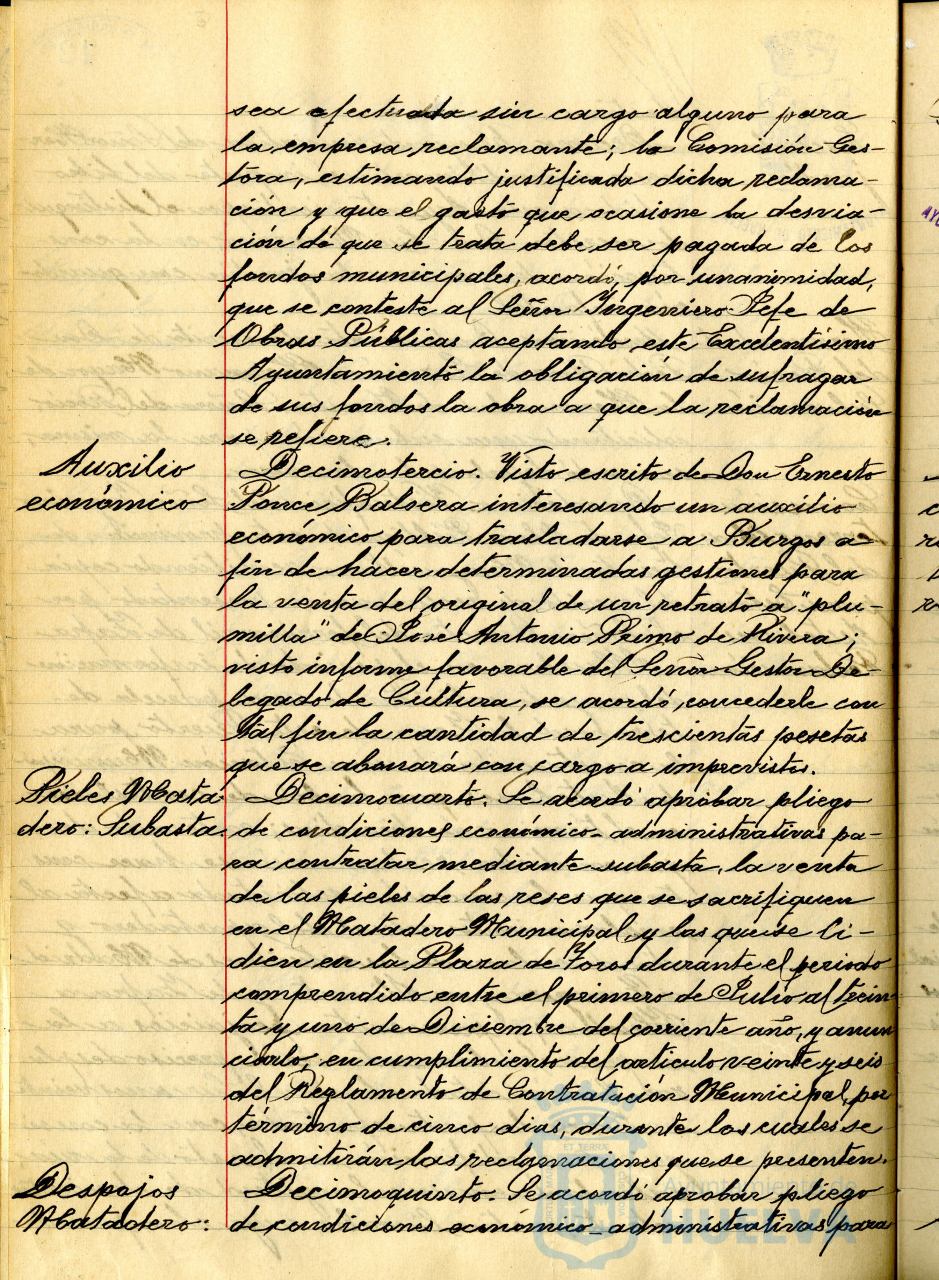 sea efectuada sin cargo alguno para
la empresa reclamante; la Comisión Ges-
tora, estimando justificada dicha reclama-
ción y que el gasto que ocasione la desvia-
ción de que se trata debe ser pagada de los
fondos municipales, acordó, por unanimidad,
que se conteste al Señor Ingeniero Jefe de
Obras Públicas aceptando este Excelentísimo
Ayuntamiento la obligación de sufragar
de sus fondos la obra a que la reclamación
se refiere.
Auxilio
económico
Decimotercio. Visto escrito de Don Ernesto
Ponce Balsera interesando un auxilio
económico para trasladarse a Burgos a
fin de hacer determinadas gestiones para
la venta del original de un retrato a "plu-
milla" de José Antonio Primo de Rivera;
visto informe favorable del Señor Gestor De-
legado de Cultura, se acordó, concederle con
tal fin la cantidad de trescientas pesetas
que se abonará con cargo a imprevistos.
Pieles Mata
dero: Subasta.
Decimocuarto. Se acordó aprobar pliego
de condiciones económico-administrativas pa-
ra contratar mediante subasta, la venta
de las pieles de las reses que se sacrifiquen
en el Matadero Municipal, y las que se li-
dien en la Plaza de Toros durante el periodo
comprendido entre el primero de Julio al trein
ta y uno de Diciembre del corriente año, y anun
ciarlo, en cumplimiento del artículo veinte y seis
del Reglamento de Contratación Municipal, por
término de cinco dias, durante los cuales se
admitirán las reclamaciones que se presenten.
Despojos
Matadero:
Decimoquinto. Se acordó aprobar pliego
de condiciones económico-administrativas para
Ayuntamiento de
HUELVA